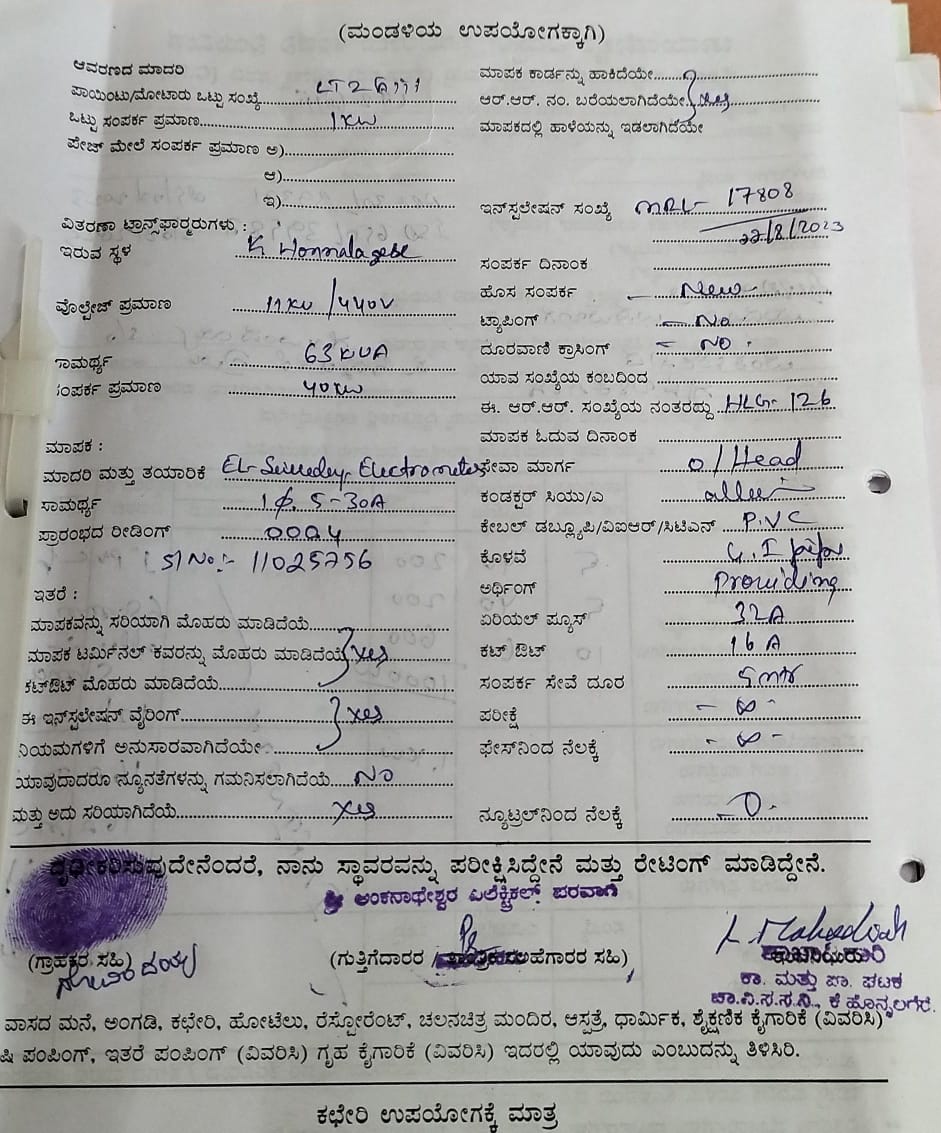 (ಮಂಡಳಿಯ ಉಪಯೋಗಕ್ಕಾಗಿ)
ಆವರಣದ ಮಾದರಿ
ಪಾಯಿಂಟು/ಮೋಟಾರು ಒಟ್ಟು ಸಂಖ್ಯೆ
ಒಟ್ಟು ಸಂಪರ್ಕ ಪ್ರಮಾಣ 1KW
ಪೇಜ್ ಮೇಲೆ ಸಂಪರ್ಕ ಪ್ರಮಾಣ ಅ)
ಆ)
ಇ)
ವಿತರಣಾ ಟ್ರಾನ್ಸ್‌ಫಾರ್ಮರುಗಳು, :
ಇರುವ ಸ್ಥಳ K Honnalagere
ವೊಲ್ಟೇಜ್ ಪ್ರಮಾಣ 11KV/440V
ಸಾಮರ್ಥ್ಯ 63KVA
ಸಂಪರ್ಕ ಪ್ರಮಾಣ 40KW
ಮಾಪಕ :
ಮಾದರಿ ಮತ್ತು ತಯಾರಿಕೆ
ಸಾಮರ್ಥ್ಯ 1ϕ. 5-30A
ಪ್ರಾರಂಭದ ರೀಡಿಂಗ್ 0004
Sl No:- 11025756
ಇತರೆ :
ಮಾಪಕವನ್ನು ಸರಿಯಾಗಿ ಮೊಹರು ಮಾಡಿದೆಯೆ
ಮಾಪಕ ಟರ್ಮಿನಲ್ ಕವರನ್ನು ಮೊಹರು ಮಾಡಿದೆಯೆ Yes
ಕಟ್‌ಔಟ್ ಮೊಹರು ಮಾಡಿದೆಯೆ
ಈ ಇನ್‌ಸ್ಟಲೇಷನ್ ವೈರಿಂಗ್ Yes
ನಿಯಮಗಳಿಗೆ ಅನುಸಾರವಾಗಿದೆಯೇ
ಯಾವುದಾದರೂ ನ್ಯೂನತೆಗಳನ್ನು ಗಮನಿಸಲಾಗಿದೆಯೆ No
ಮತ್ತು ಅದು ಸರಿಯಾಗಿದೆಯೆ Yes
ಮಾಪಕ ಕಾರ್ಡನ್ನು ಹಾಕಿದೆಯೇ
ಆರ್.ಆರ್. ನಂ. ಬರೆಯಲಾಗಿದೆಯೇ Yes
ಮಾಪಕದಲ್ಲಿ ಹಾಳೆಯನ್ನು ಇಡಲಾಗಿದೆಯೇ
ಇನ್‌ಸ್ಟಲೇಷನ್ ಸಂಖ್ಯೆ 17808
22/8/2023
ಸಂಪರ್ಕ ದಿನಾಂಕ
ಹೊಸ ಸಂಪರ್ಕ - New -
ಟ್ಯಾಪಿಂಗ್ - No
ದೂರವಾಣಿ ಕ್ರಾಸಿಂಗ್ - NO .
ಯಾವ ಸಂಖ್ಯೆಯ ಕಂಬದಿಂದ
ಈ. ಆರ್.ಆರ್. ಸಂಖ್ಯೆಯ ನಂತರದ್ದು HLG- 126
ಮಾಪಕ ಓದುವ ದಿನಾಂಕ
ಸೇವಾ ಮಾರ್ಗ O/Head
ಕಂಡಕ್ಟರ್ ಸಿಯು/ಎ
ಕೇಬಲ್ ಡಬ್ಲ್ಯೂಪಿ/ವಿಐಆರ್/ಸಿಟಿಎನ್ P.V.C
ಕೊಳವೆ G.I pipe
ಅರ್ಥಿಂಗ್ Prowiding
ಏರಿಯಲ್ ಪ್ಯೂಸ್ 32A
ಕಟ್ ಔಟ್ 16 A
ಸಂಪರ್ಕ ಸೇವೆ ದೂರ 5 mtr
ಪರೀಕ್ಷೆ - ∞ -
ಫೇಸ್‌ನಿಂದ ನೆಲಕ್ಕೆ - ∞ -
ನ್ಯೂಟ್ರಲ್‌ನಿಂದ ನೆಲಕ್ಕೆ - 0 -
ದೃಢೀಕರಿಸುವುದೇನೆಂದರೆ, ನಾನು ಸ್ಥಾವರವನ್ನು ಪರೀಕ್ಷಿಸಿದ್ದೇನೆ ಮತ್ತು ರೇಟಿಂಗ್ ಮಾಡಿದ್ದೇನೆ.
ಶ್ರೀ ಅಂಕನಾಥೇಶ್ವರ ಎಲೆಕ್ಟ್ರಿಕಲ್ಸ್ ಪರವಾಗಿ
(ಗ್ರಾಹಕರ ಸಹಿ)
(ಗುತ್ತಿಗೆದಾರರ / ಸಹಿ)
ಕಾ. ಮತ್ತು ಪಾ. ಘಟಕ
ಚಾ.ವಿ.ಸ.ಸ.ನಿ., ಕೆ ಹೊನ್ನಲಗೆರೆ.
ವಾಸದ ಮನೆ, ಅಂಗಡಿ, ಕಛೇರಿ, ಹೋಟೆಲು, ರೆಸ್ಟೋರೆಂಟ್, ಚಲನಚಿತ್ರ ಮಂದಿರ, ಆಸ್ಪತ್ರೆ, ಧಾರ್ಮಿಕ, ಶೈಕ್ಷಣಿಕ ಕೈಗಾರಿಕೆ (ವಿವರಿಸಿ)
ಷಿ ಪಂಪಿಂಗ್, ಇತರೆ ಪಂಪಿಂಗ್ (ವಿವರಿಸಿ) ಗೃಹ ಕೈಗಾರಿಕೆ (ವಿವರಿಸಿ) ಇದರಲ್ಲಿ ಯಾವುದು ಎಂಬುದನ್ನು ತಿಳಿಸಿರಿ.
ಕಛೇರಿ ಉಪಯೋಗಕ್ಕೆ ಮಾತ್ರ